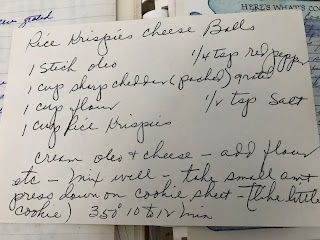 HERE'S WHAT'S CO
Rice Krispies Cheese Balls
1 Stick oleo 1/4 tsp red pepper
1 cup sharp cheddar (packed) grated
1 cup flour 1/2 tsp Salt
1 cup Rice Krispies
cream oleo & cheese - add flour
etc - mix well - take small amt
press down on cookie sheet - (like little
cookie) 350° 10 to min